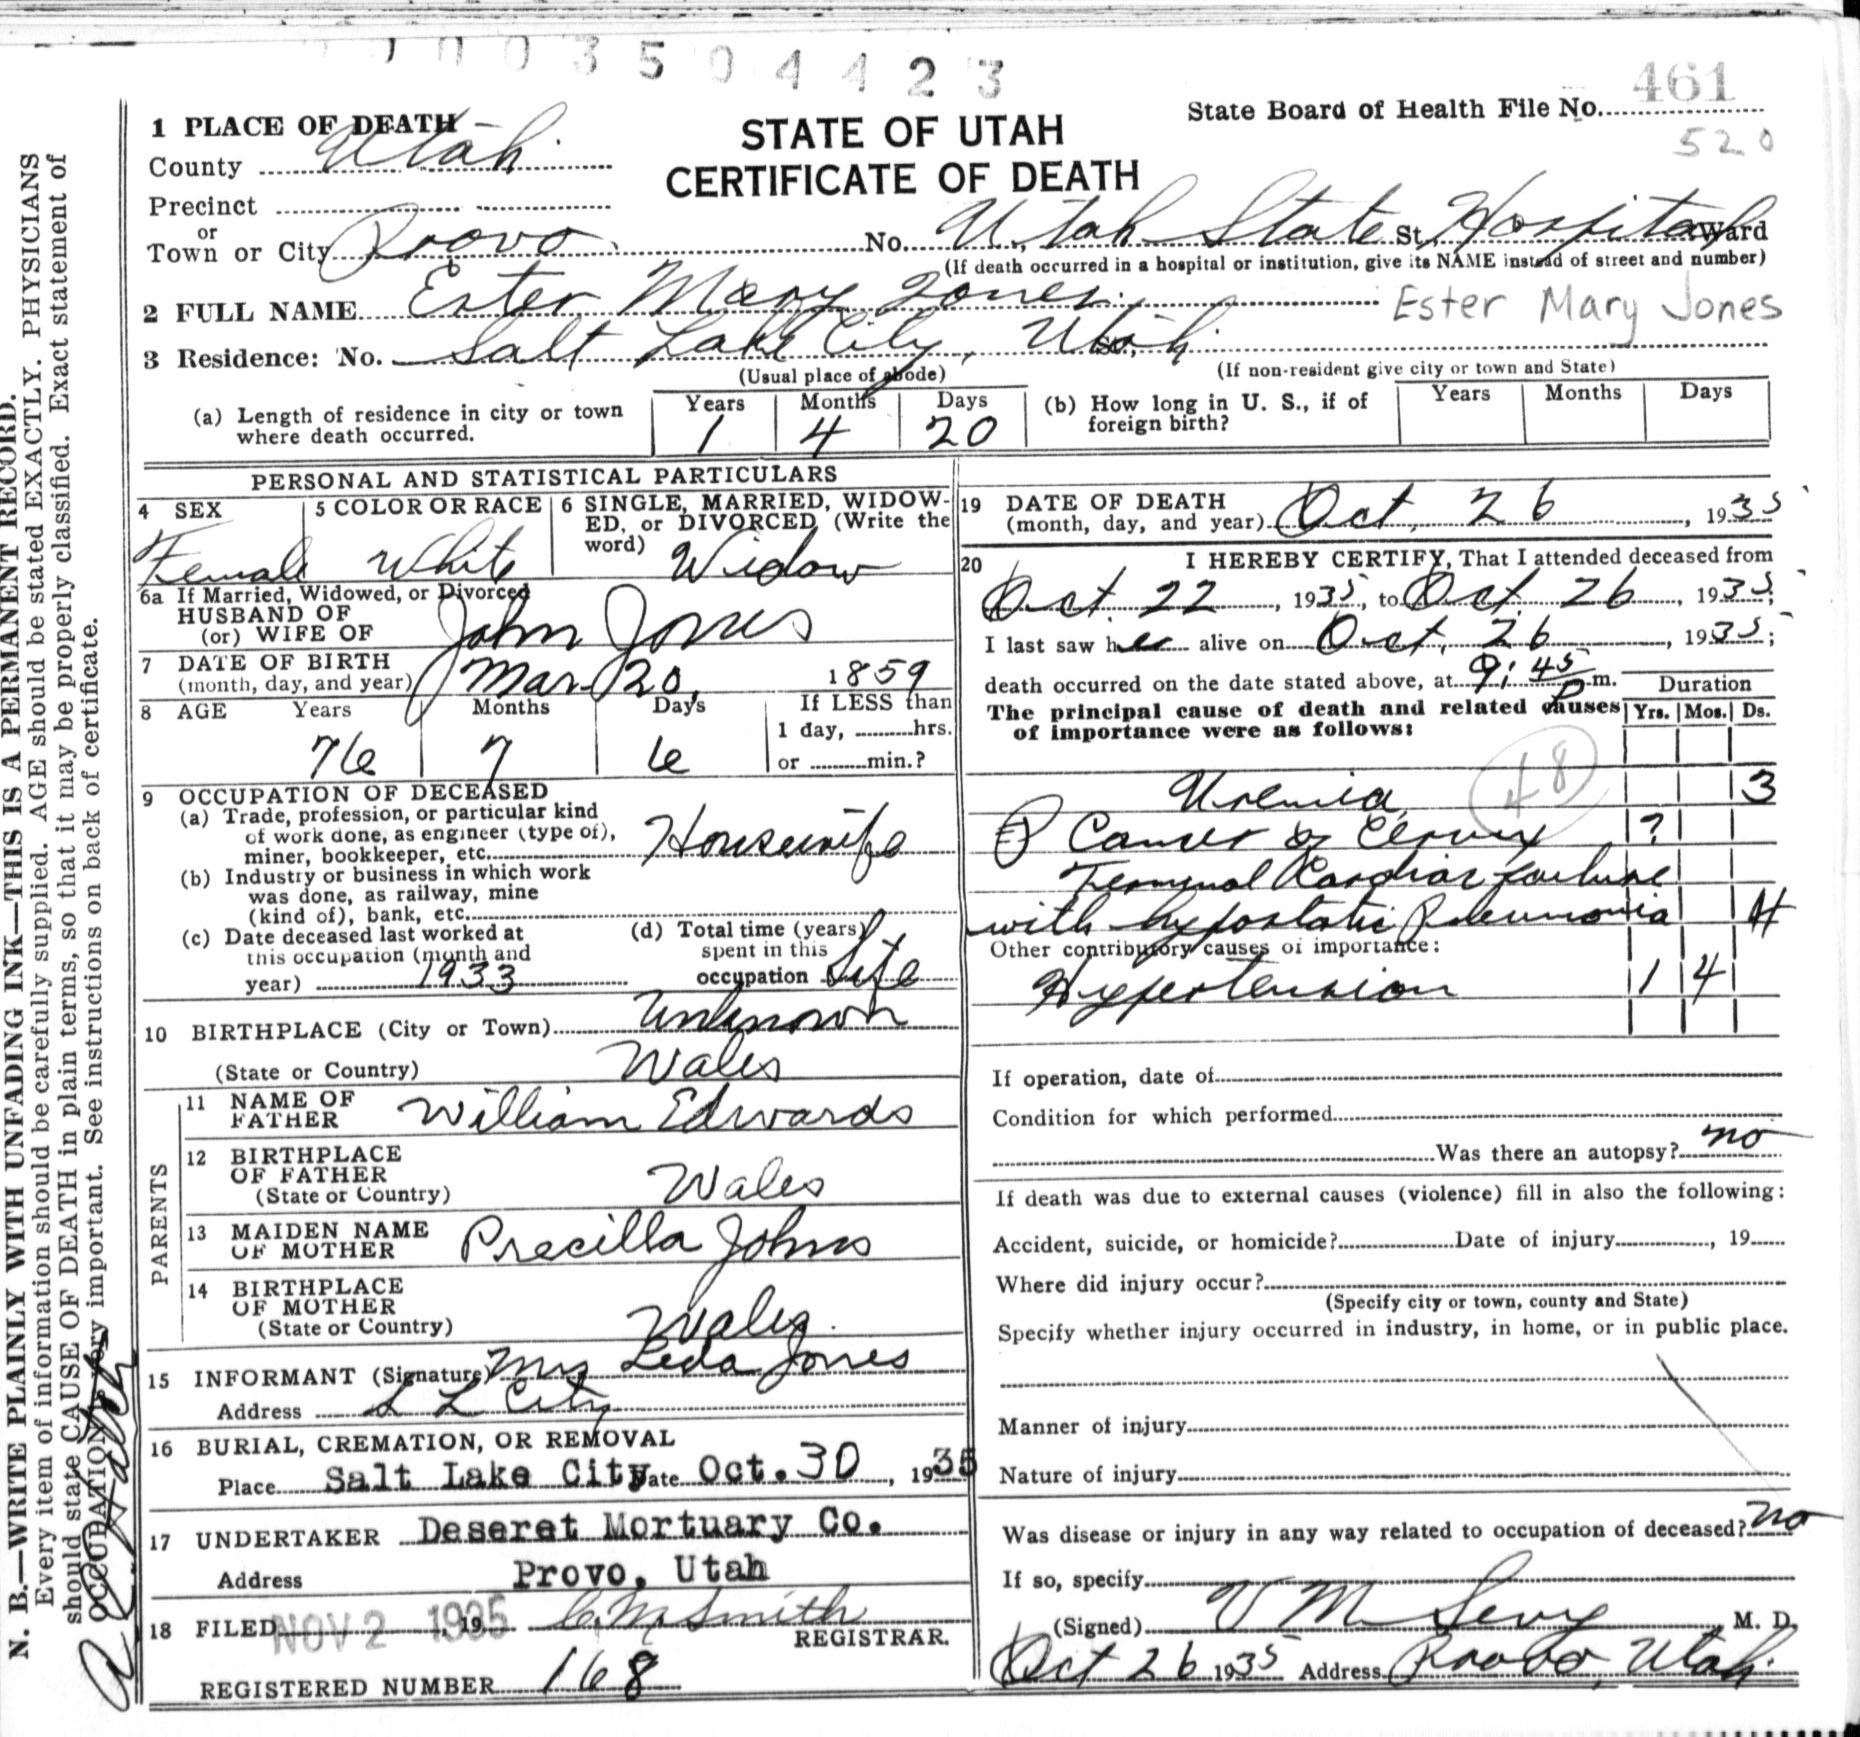 0003504423
461
State Board of Health File No.
520
STATE OF UTAH
CERTIFICATE OF DEATH
1 PLACE OF DEATH
County Utah
Precinct
or
Town or City Provo No. Utah State St. Hospital Ward
(If death occurred in a hospital or institution, give its NAME instead of street and number)
2 FULL NAME Ester Mary Jones Ester Mary Jones
3 Residence: No. Salt Lake City, Utah St.,
(Usual place of abode) (If non-resident give city or town and State)
(a) Length of residence in city or town where death occurred. Years 1 Months 4 Days 20
(b) How long in U. S., if of foreign birth? Years Months Days
PERSONAL AND STATISTICAL PARTICULARS
4 SEX Female
5 COLOR OR RACE White
6 SINGLE, MARRIED, WIDOW-
ED, or DIVORCED (Write the
word) Widow
6a If Married, Widowed, or Divorced
HUSBAND OF
(or) WIFE OF John Jones
7 DATE OF BIRTH
(month, day, and year) Mar 20, 1859
8 AGE Years 76 Months 7 Days 6
If LESS than
1 day, hrs.
or min.?
9 OCCUPATION OF DECEASED
(a) Trade, profession, or particular kind
of work done, as engineer (type of),
miner, bookkeeper, etc. Housewife
(b) Industry or business in which work
was done, as railway, mine
(kind of), bank, etc.
(c) Date deceased last worked at
this occupation (month and
year) 1933
(d) Total time (years)
spent in this
occupation Life
10 BIRTHPLACE (City or Town) Unknown
(State or Country) Wales
PARENTS
11 NAME OF
FATHER William Edwards
12 BIRTHPLACE
OF FATHER
(State or Country) Wales
13 MAIDEN NAME
OF MOTHER Precilla Johns
14 BIRTHPLACE
OF MOTHER
(State or Country) Wales
15 INFORMANT (Signature) Mrs Leda Jones
Address S L City
16 BURIAL, CREMATION, OR REMOVAL
Place Salt Lake City Date Oct. 30, 1935
17 UNDERTAKER Deseret Mortuary Co.
Address Provo, Utah
18 FILED NOV 2 1935, 19 C. M. Smith
REGISTRAR.
REGISTERED NUMBER 168
19 DATE OF DEATH
(month, day, and year) Oct. 26, 1935
20 I HEREBY CERTIFY, That I attended deceased from
Oct. 22, 1935, to Oct. 26, 1935;
I last saw her alive on Oct. 26, 1935;
death occurred on the date stated above, at 9:45 p m.
The principal cause of death and related causes
of importance were as follows:
Duration
Yrs. Mos. Ds.
48
Uremia 3
Cancer of Cervix ?
Terminal Cardiac failure
with hypostatic Pneumonia 4
Other contributory causes of importance:
Hypertension 1 4
If operation, date of
Condition for which performed
Was there an autopsy? no
If death was due to external causes (violence) fill in also the following:
Accident, suicide, or homicide? Date of injury , 19
Where did injury occur?
(Specify city or town, county and State)
Specify whether injury occurred in industry, in home, or in public place.
Manner of injury
Nature of injury
Was disease or injury in any way related to occupation of deceased? no
If so, specify
(Signed) V M Sevy M. D.
Oct 26 1935 Address Provo, Utah.
N. B.—WRITE PLAINLY WITH UNFADING INK—THIS IS A PERMANENT RECORD.
Every item of information should be carefully supplied. AGE should be stated EXACTLY. PHYSICIANS
should state CAUSE OF DEATH in plain terms, so that it may be properly classified. Exact statement of
OCCUPATION is very important. See instructions on back of certificate.